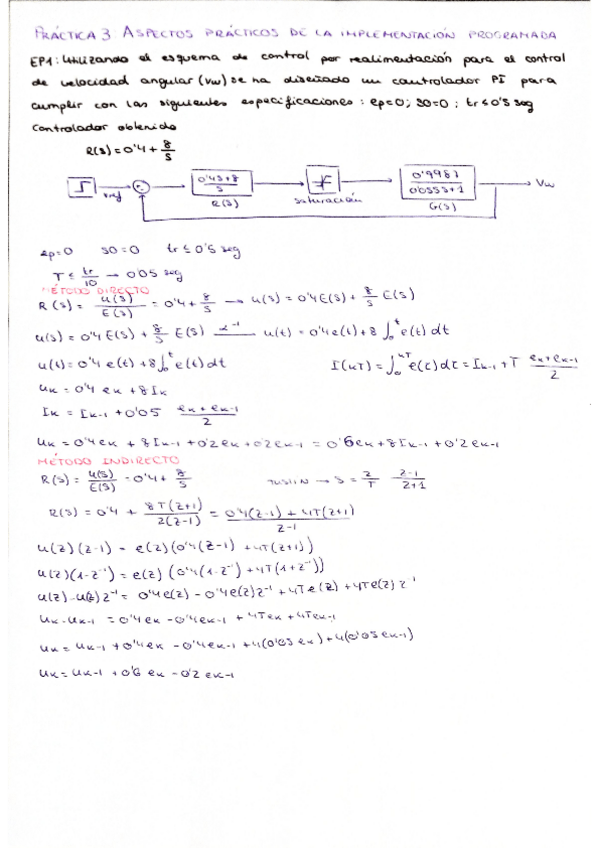 PRÁCTICA 3: ASPECTOS PRÁCTICOS DE LA IMPLEMENTACIÓN PROGRAMADA
EP1: Utilizando el esquema de control por realimentación para el control
de velocidad angular (Vw) se ha diseñado un controlador PI para
cumplir con las siguientes especificaciones: ep=0; SO=0; tr≤0'5 seg
Controlador obtenido
R(s) = 0'4 + 8/s
Vref
0'4s+8 / s
R(s)
saturación
0'9987 / 0'055s+1
G(s)
Vw
ep=0 SO=0 tr ≤ 0'5 seg
T ≤ tr/10 → 0'05 seg
MÉTODO DIRECTO
R(s) = u(s)/E(s) = 0'4 + 8/s → u(s) = 0'4E(s) + 8/s E(s)
u(s) = 0'4 E(s) + 8/s E(s) ℒ⁻¹→ u(t) = 0'4e(t) + 8 ∫₀ᵗ e(t) dt
u(t) = 0'4 e(t) + 8∫₀ᵗ e(t) dt I(kT) = ∫₀ᵏᵀ e(τ) dτ = Ik-1 + T (ek + ek-1)/2
uk = 0'4 ek + 8Ik
Ik = Ik-1 + 0'05 (ek + ek-1)/2
uk = 0'4ek + 8Ik-1 + 0'2ek + 0'2ek-1 = 0'6ek + 8Ik-1 + 0'2ek-1
MÉTODO INDIRECTO
R(s) = u(s)/E(s) = 0'4 + 8/s TUSTIN → s = 2/T z-1/z+1
R(s) = 0'4 + 8T(z+1)/2(z-1) = 0'4(z-1) + 4T(z+1) / z-1
u(z)(z-1) = e(z)(0'4(z-1) + 4T(z+1))
u(z)(1-z⁻¹) = e(z) (0'4(1-z⁻¹) + 4T(1+z⁻¹))
u(z) - u(z)z⁻¹ = 0'4e(z) - 0'4e(z)z⁻¹ + 4Te(z) + 4Te(z)z⁻¹
uk - uk-1 = 0'4ek - 0'4ek-1 + 4Tek + 4Tek-1
uk = uk-1 + 0'4ek - 0'4ek-1 + 4(0'05ek) + 4(0'05ek-1)
uk = uk-1 + 0'6 ek - 0'2 ek-1